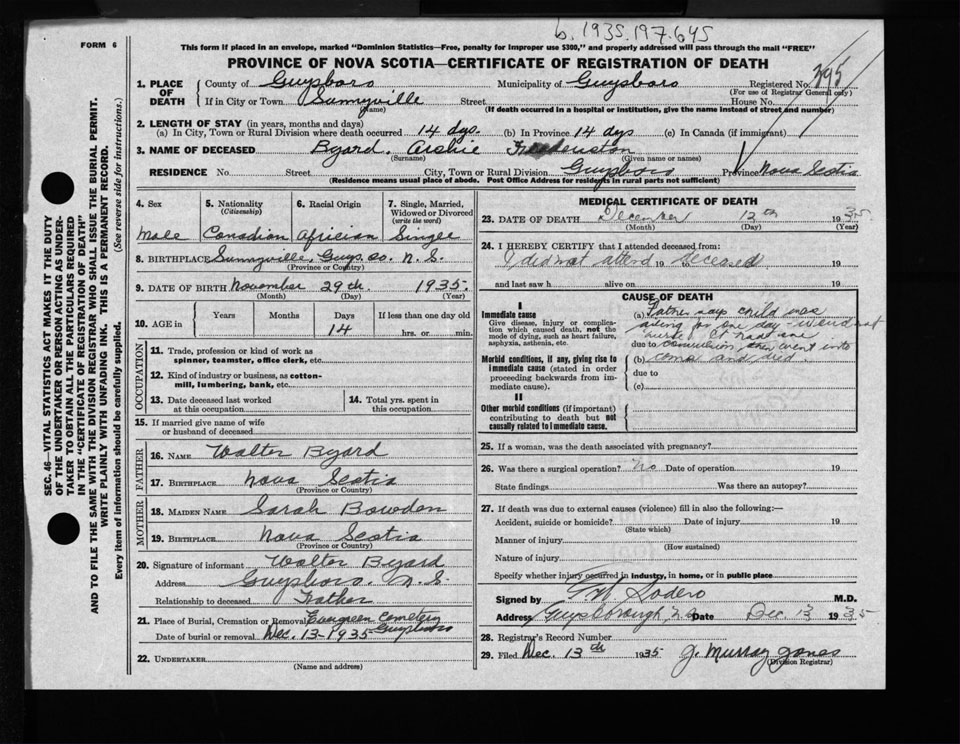 b. 1935.197.645
FORM 6
This form if placed in an envelope, marked "Dominion Statistics—Free, penalty for improper use $300," and properly addressed will pass through the mail "FREE"
PROVINCE OF NOVA SCOTIA—CERTIFICATE OF REGISTRATION OF DEATH
SEC. 46—VITAL STATISTICS ACT MAKES IT THE DUTY
OF THE UNDERTAKER OR PERSON ACTING AS UNDER-
TAKER TO OBTAIN ALL THE PARTICULARS REQUIRED
IN THE "CERTIFICATE OF REGISTRATION OF DEATH"
AND TO FILE THE SAME WITH THE DIVISION REGISTRAR WHO SHALL ISSUE THE BURIAL PERMIT.
WRITE PLAINLY WITH UNFADING INK. THIS IS A PERMANENT RECORD.
Every item of information should be carefully supplied. (See reverse side for instructions.)
1. PLACE OF DEATH County of Guysboro Municipality of Guysboro Registered No. 395
(For use of Registrar General only)
If in City or Town Sunnyville Street House No.
(Name) (If death occurred in a hospital or institution, give the name instead of street and number)
2. LENGTH OF STAY (in years, months and days)
(a) In City, Town or Rural Division where death occurred 14 dys. (b) In Province 14 dys (c) In Canada (if immigrant)
3. NAME OF DECEASED Byard, Archie
(Surname) (Given name or names)
RESIDENCE No. Street City, Town or Rural Division Guysboro Province Nova Scotia
(Residence means usual place of abode. Post Office Address for residents in rural parts not sufficient)
4. Sex Male
5. Nationality (Citizenship) Canadian
6. Racial Origin African
7. Single, Married, Widowed or Divorced (write the word) Single
8. BIRTHPLACE Sunnyville, Guys. Co. N. S.
(Province or Country)
9. DATE OF BIRTH November 29th 1935.
(Month) (Day) (Year)
10. AGE in Years Months Days 14 If less than one day old hrs. or min.
OCCUPATION
11. Trade, profession or kind of work as
spinner, teamster, office clerk, etc.
12. Kind of industry or business, as cotton-
mill, lumbering, bank, etc.
13. Date deceased last worked at this occupation 14. Total yrs. spent in this occupation
15. If married give name of wife
or husband of deceased
FATHER
16. NAME Walter Byard
17. BIRTHPLACE Nova Scotia
(Province or Country)
MOTHER
18. MAIDEN NAME Sarah Bowden
19. BIRTHPLACE Nova Scotia
(Province or Country)
20. Signature of informant Walter Byard
Address Guysboro. N. S.
Relationship to deceased Father
21. Place of Burial, Cremation or Removal Evergreen Cemetery
Date of burial or removal Dec. 13-1935- Guysboro
22. UNDERTAKER
(Name and address)
MEDICAL CERTIFICATE OF DEATH
23. DATE OF DEATH December 12th 1935.
(Month) (Day) (Year)
24. I HEREBY CERTIFY that I attended deceased from:
I did not attend 19 to deceased 19
and last saw h alive on 19
CAUSE OF DEATH
I
Immediate cause
Give disease, injury or complica-
tion which caused death, not the
mode of dying, such as heart failure,
asphyxia, asthenia, etc.
Morbid conditions, if any, giving rise to
immediate cause (stated in order
proceeding backwards from im-
mediate cause).
II
Other morbid conditions (if important)
contributing to death but not
causally related to immediate cause.
(a) Father says child was
ailing for one day - would not
nurse
due to convulsion and went into
(b) coma and died.
due to
(c)
25. If a woman, was the death associated with pregnancy?
26. Was there a surgical operation? No Date of operation 19
State findings Was there an autopsy?
27. If death was due to external causes (violence) fill in also the following:—
Accident, suicide or homicide? Date of injury 19
(State which)
Manner of injury
(How sustained)
Nature of injury
Specify whether injury occurred in industry, in home, or in public place
Signed by Sodero M.D.
Address Guysborough, N.S. Date Dec 13 1935
28. Registrar's Record Number
29. Filed Dec. 13th 1935 J. Murray Jones
(Division Registrar)